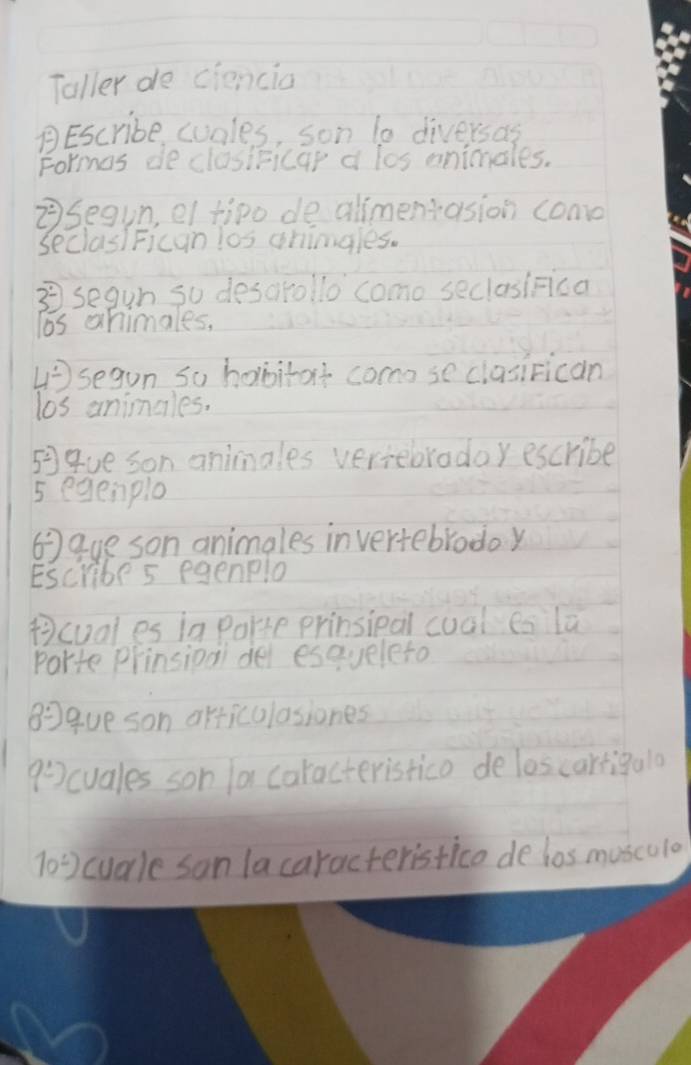 Taller de ciencia
1º) Escribe, cuales, son la diversas
Formas de clasiFicar a los animales.
2º) Segun, el tipo de alimentasion como
seclasiFican los animales.
3º) segun su desarollo como seclasiFica
los animales.
4º) segun su habitat como se clasiFican
los animales.
5º) que son animales vertebrado y escribe
5 egenplo
6º) que son animales invertebrado y
Escribe 5 egenplo
7º) cual es la parte prinsipal cual es la
parte prinsipal del esqueleto
8º) que son articulasiones
9º) cuales son la caracteristico de los cartigalo
10º) cuale son la caracteristico de los musculo